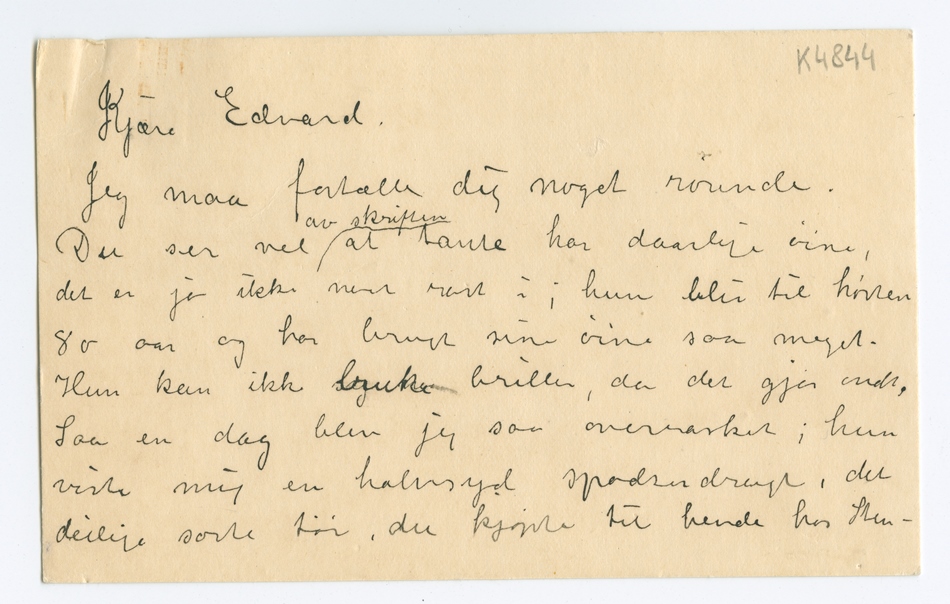 K4844
Kjære Edvard.
Jeg maa fortælle dig noget rörende.
av skriften
Du ser vel at tante har daarlige öine,
det er jo ikke rart i; hun blir til hösten
80 aar og har brugt sine öine saa meget.
Hun kan ikke bruke briller, da det gjör ondt.
Saa en dag blev jeg saa overrasket; hun
viste mig en halvsyd spadserdragt, det
deilige sorte töi, du kjöpte til hende hos Sten-